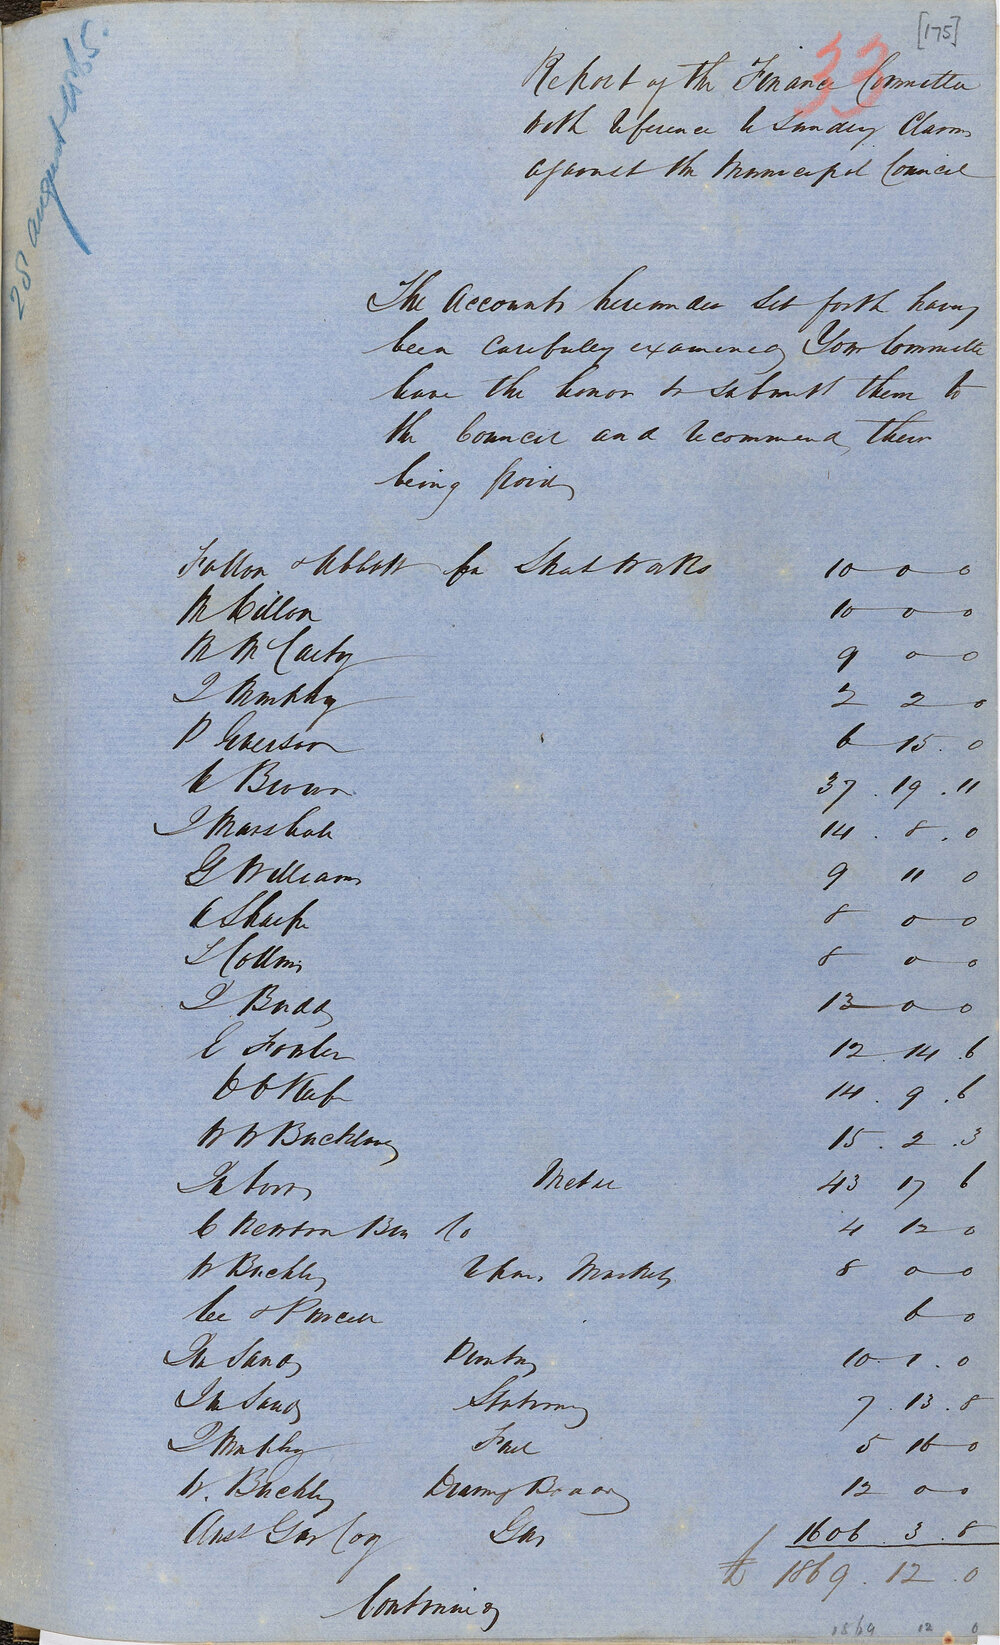 [175]
33
28 august 1865.
Report of the Finance Committee
with reference to Sundry Claims
against the Municipal Council
The Accounts hereunder set forth having
been carefully examined Your Committee
have the honor to submit them to
the Council and recommend their
being paid
Fallon & Abbott for Street Works 10 0 0
M Dillon 10 0 0
M McCarty 9 0 0
J Murphy 2 2 0
P Everson 6 15 . 0
W Brown 37 . 19 . 11
J Marshall 14 . 8 . 0
G Williams 9 11 0
A Sharpe 8 0 0
J Collins 8 0 0
J Budd 13 0 0
E Fowler 12 . 14 . 6
14 . 9 . 6
W W Buckland 15 . 2 . 3
Meter 43 17 6
C Newton Bro Co 4 12 0
W Buckley Markets 8 0 0
Lee & Purcell 6 0
Jn Sands Printing 10 . 1 . 0
Jn Sands Stationery 7 . 13 . 8
J Murphy Fuel 5 16 0
W. Buckley Drawing Board 12 0 0
Aust Gas Coy Gas 1606 . 3 . 8
£ 1869 . 12 . 0
Continuing
1869 12 0